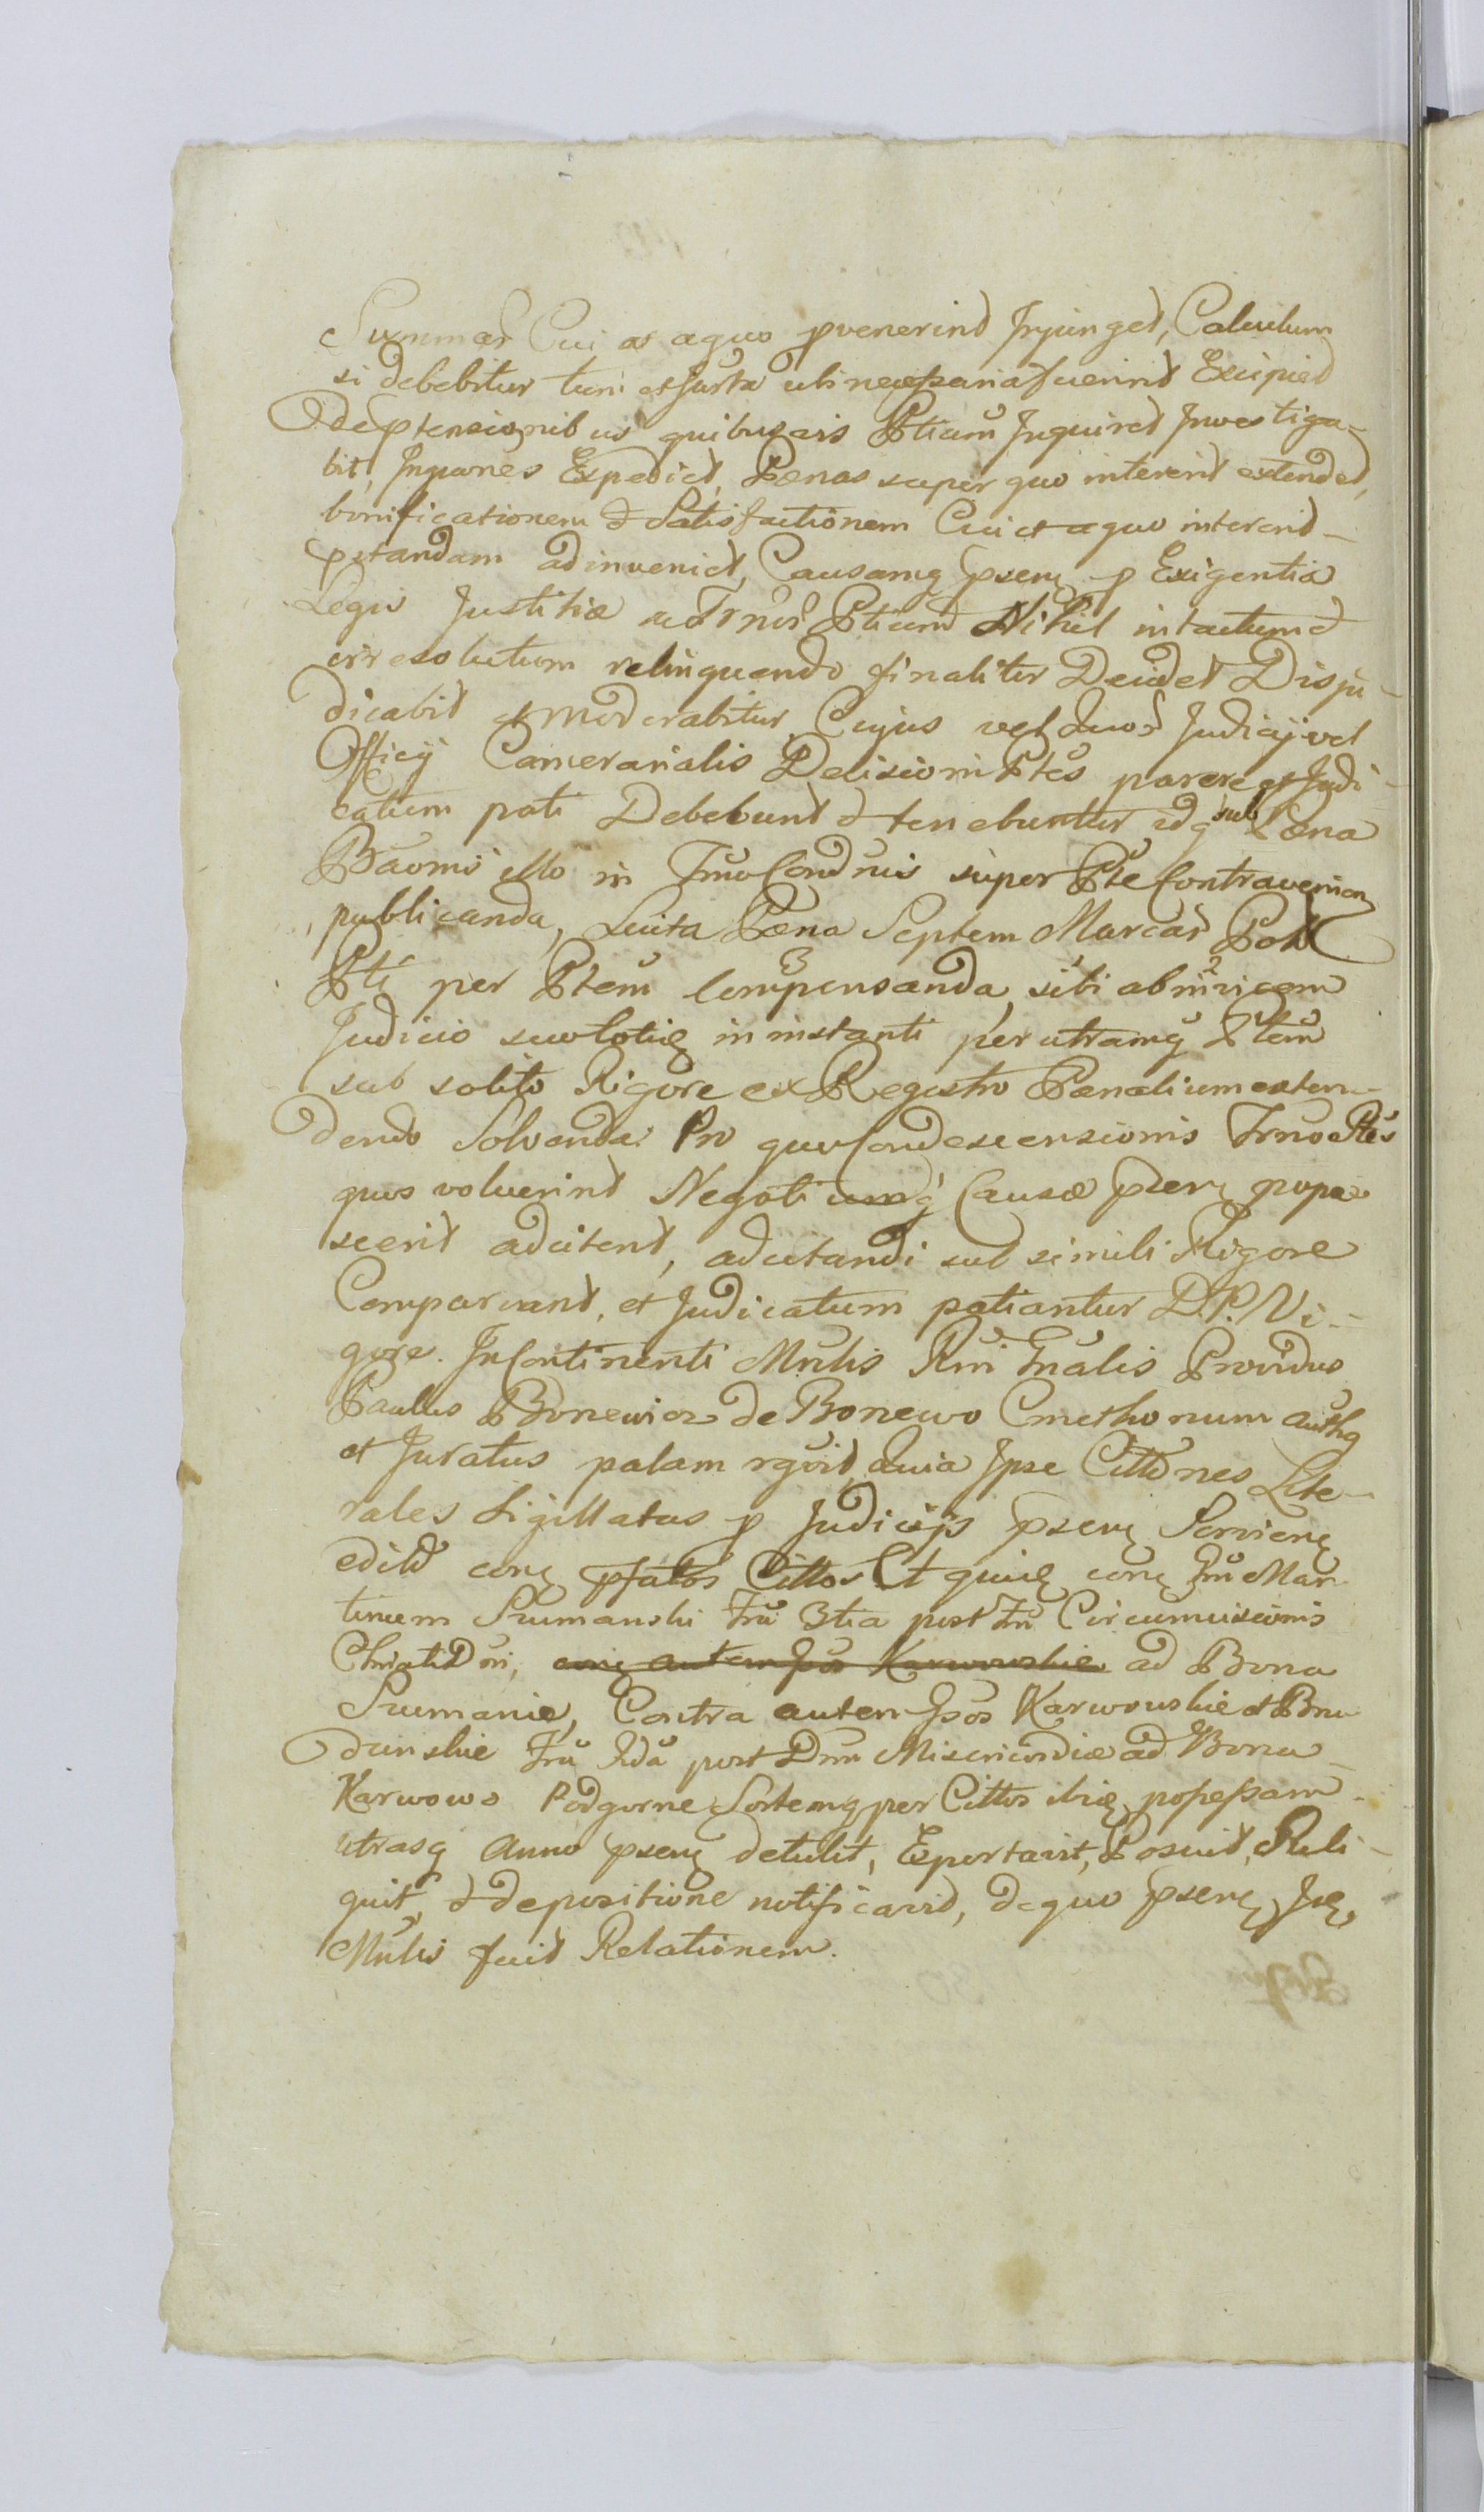 Summas Cui as aquo pvenerint Injunget, Calculum
si debebitur tum et Jurta ubi necessaria fuerint Excipiet
de ptensionibus quibusvis Ptium Inquiret Investiga-
bit, Expediet, Pænas super quo intererit extendet,
bonificationem & Satisfactionem Cui et aquo intererit
pstandam adinveniet, Causamq psen p Exigentia
Legis Justitiæ Ptium Nihil intactum &
irresolutum relinquendo finaliter Decidet Disju-
dicabit et moderabitur, Cujus vel Judicij vel
Officij Camerarialis Decisioni Ptes parere et Judi-
catum pati Debebunt & tenebuntur idq sub Pæna
Bãomis illo in Tmo Condnis super Pte Contravenien
publicanda, Luita Pæna Septem Marcas Pol
Pti per Ptem Compensanda, sibi abinvicem
Judicio seu in instanti per utramq Ptem
sub solito Rigore ex Regestro Pænalium exten-
dendo Solvenda: Pro quo Condescensionis Trno Ptes
quos voluerint Negotiumq Causæ psen popo-
scerit adcitent, adcitandi sub simili Rigore
Compareant, et Judicatum patiantur D.P. Vi-
gore. In Continenti Mnlis Rni Gnalis Providus
Paulus Bonewicz de Bonewo Cmethonum authq
et Juratus palam rgvit, Quia Ipse Cittõnes Lite-
rales Sigillatas p Judicijs psen Servien
edit con pfatos Cittos Et quid con Gm Mar-
tinum Szumanski fria 3tia post fm Circumcisionis
Chriati Dni, ad Bona
Szumanie, Contra autem Gsos Karwowskie et Bru-
dunskie fria 2da post Dnm Misericordiæ ad Bona
Karwowo Podgorne Sortemq per Cittos ibid possessam
utrasq Anno psen detulit, Exportavit, Posuit, Reli-
quit, & depositione notificavit, de quo psen Ide,
Mnlis fecit Relationem.